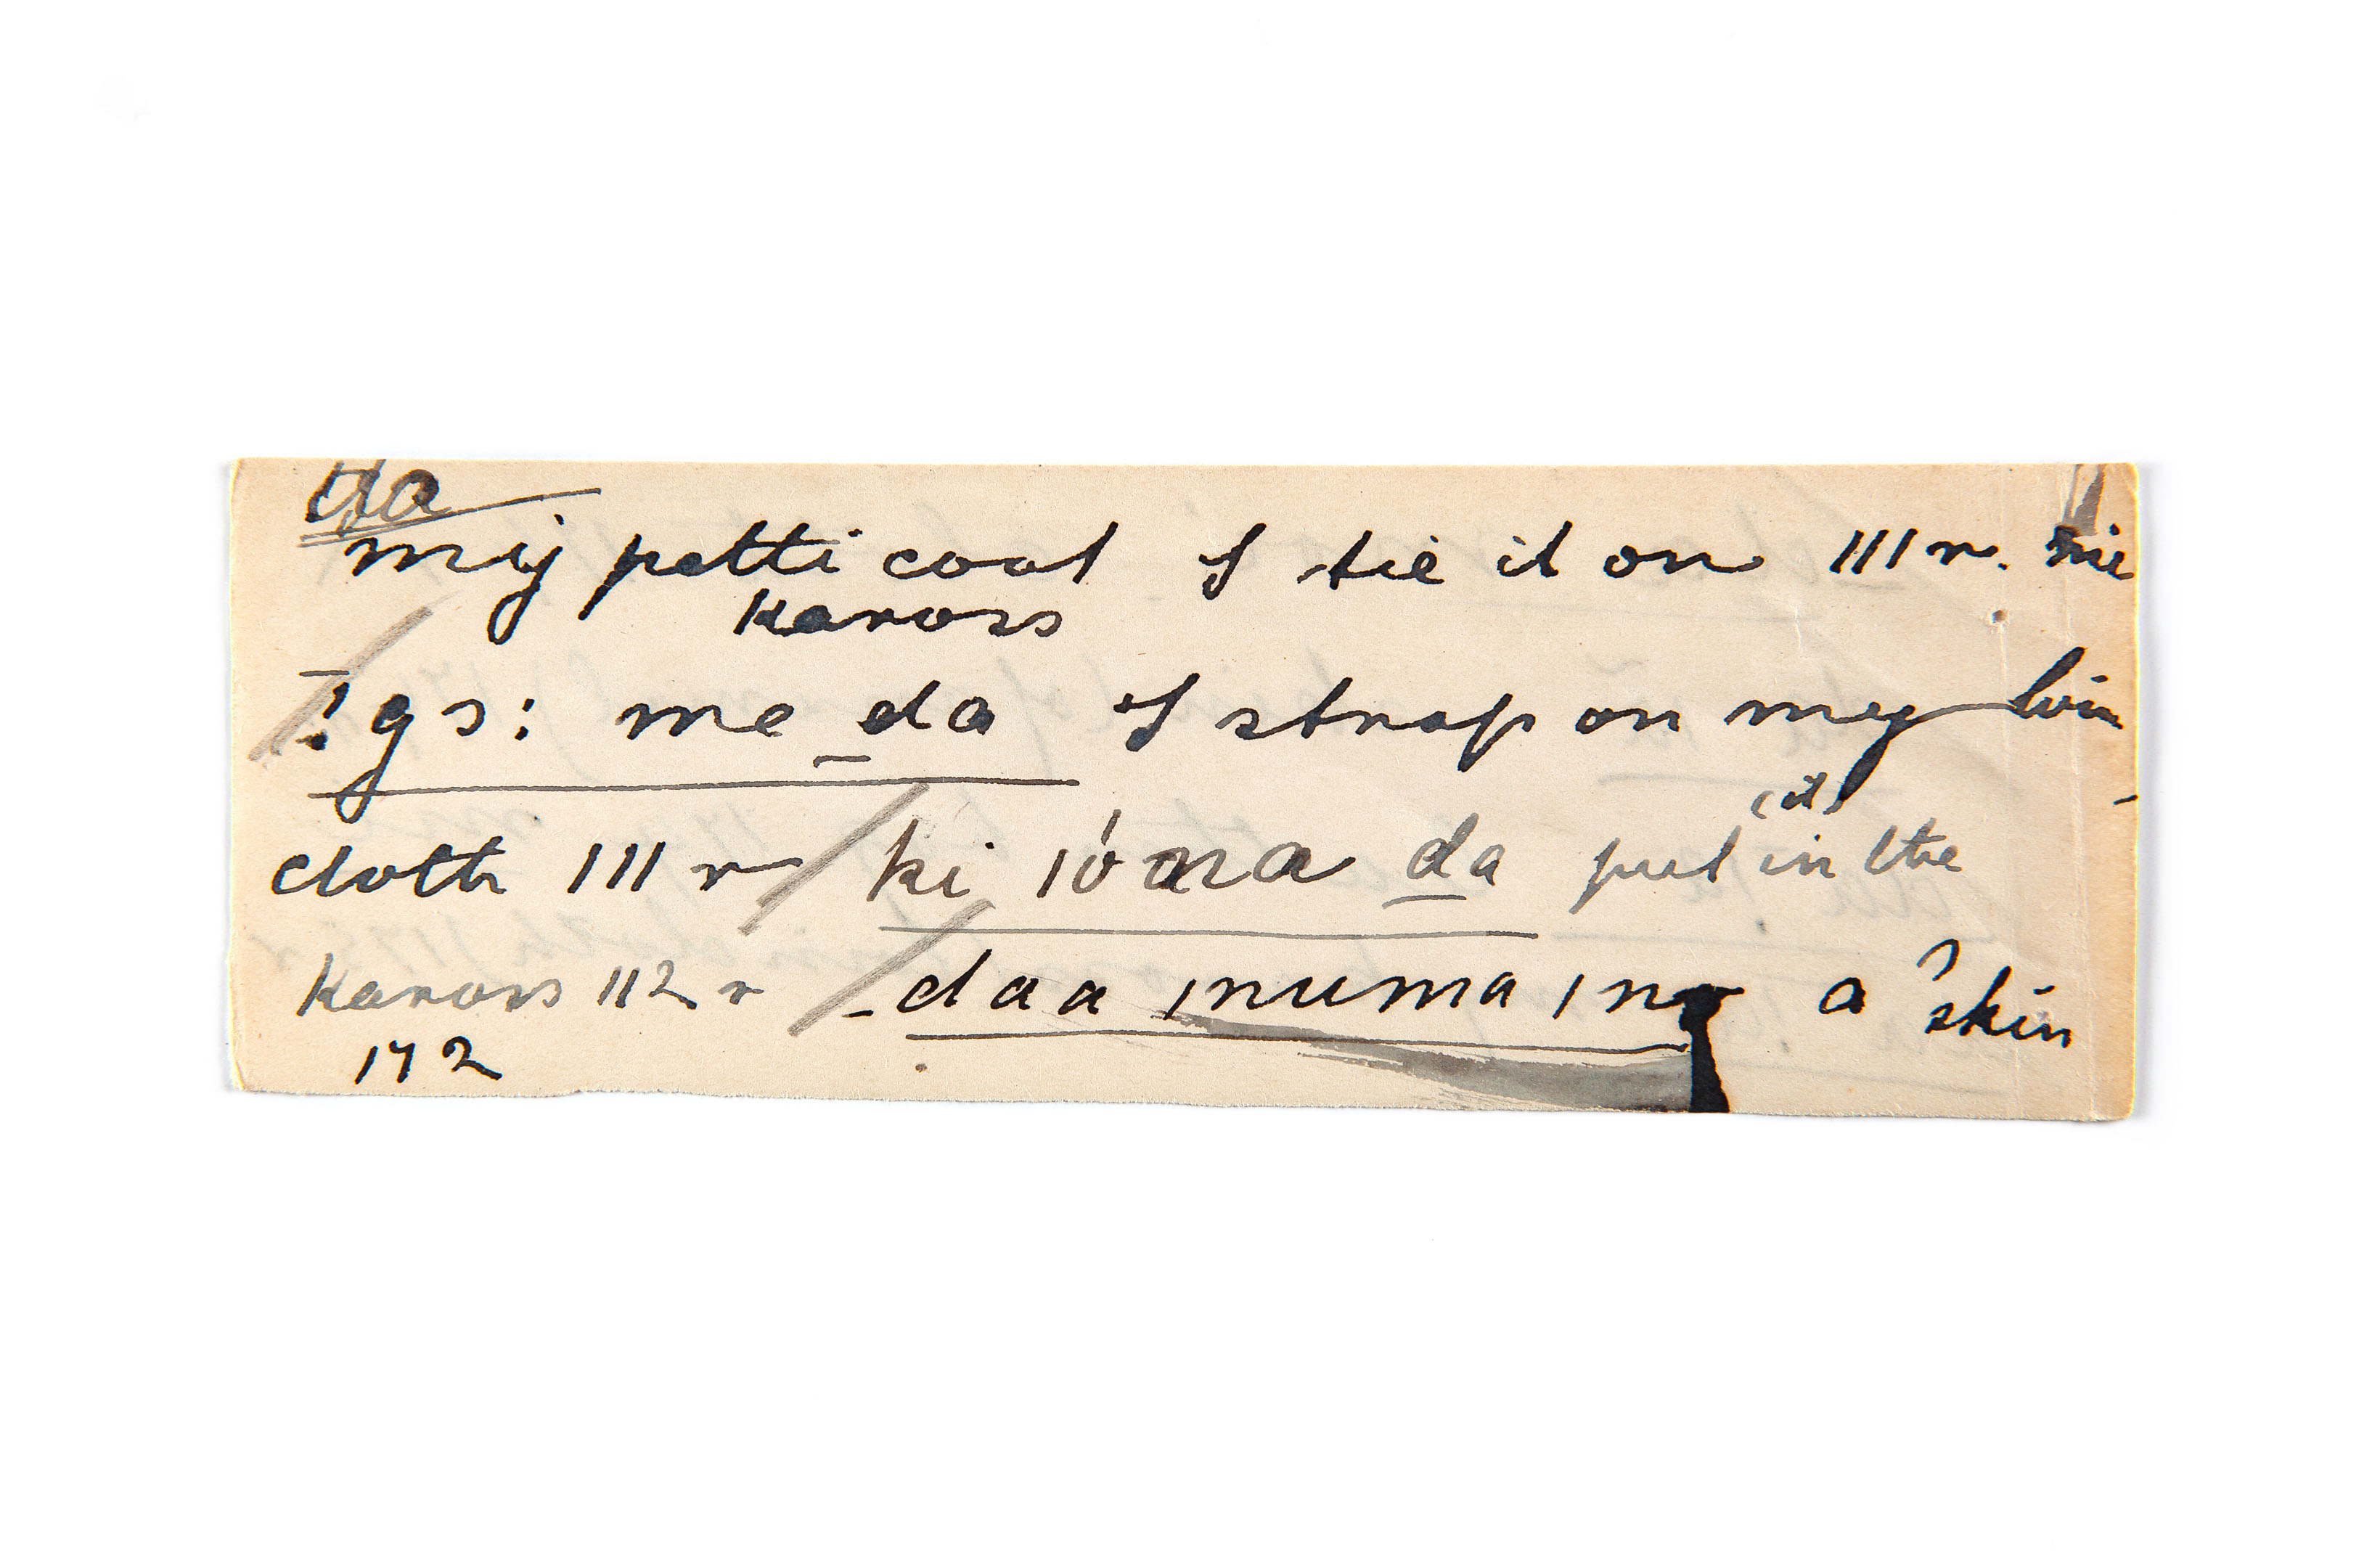 da
my petti coat I tie it on 111 r. me
kaross
!gɔ: me da I strap on my loin
(it)
cloth 111 r ki ǀóana da put in the
kaross 112 r daa ǀnuma ǀna a ? skin
172